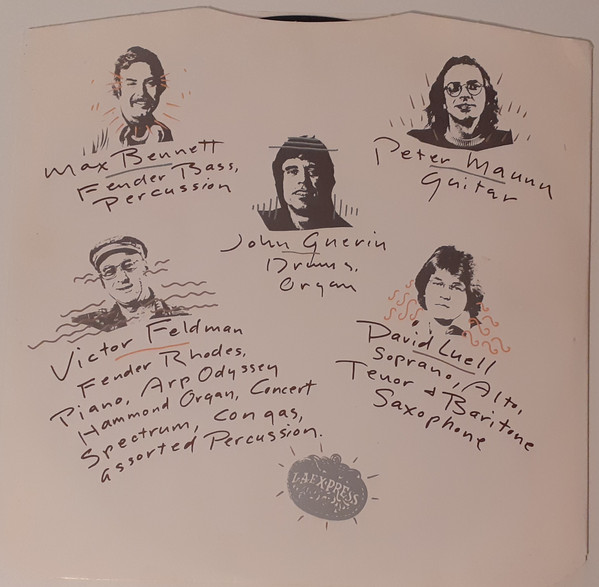 Max Bennett
Fender Bass,
Percussion
Peter Maunu
Guitar
John Guerin
Drums,
Organ
Victor Feldman
Fender Rhodes,
Piano, Arp Odyssey
Hammond Organ, Concert
Spectrum, Congas,
assorted Percussion.
David Luell
Soprano, Alto,
Tenor & Baritone
Saxophone
L.A. EXPRESS